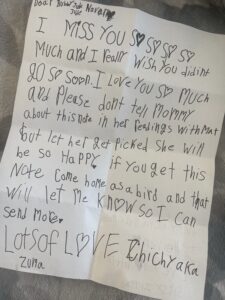 I MISS YOU SO SO SO SO
Much and I really wish You didint
go so soon. I Love You so much
and Please dont tell Mommy
about this note in her readings With Mat
but let her get picked she will
be so Happy. if you get this
Note Come home as a bird and that
will let me know so I can
Send More
Lots of LOVE Chichyaka
Zuma